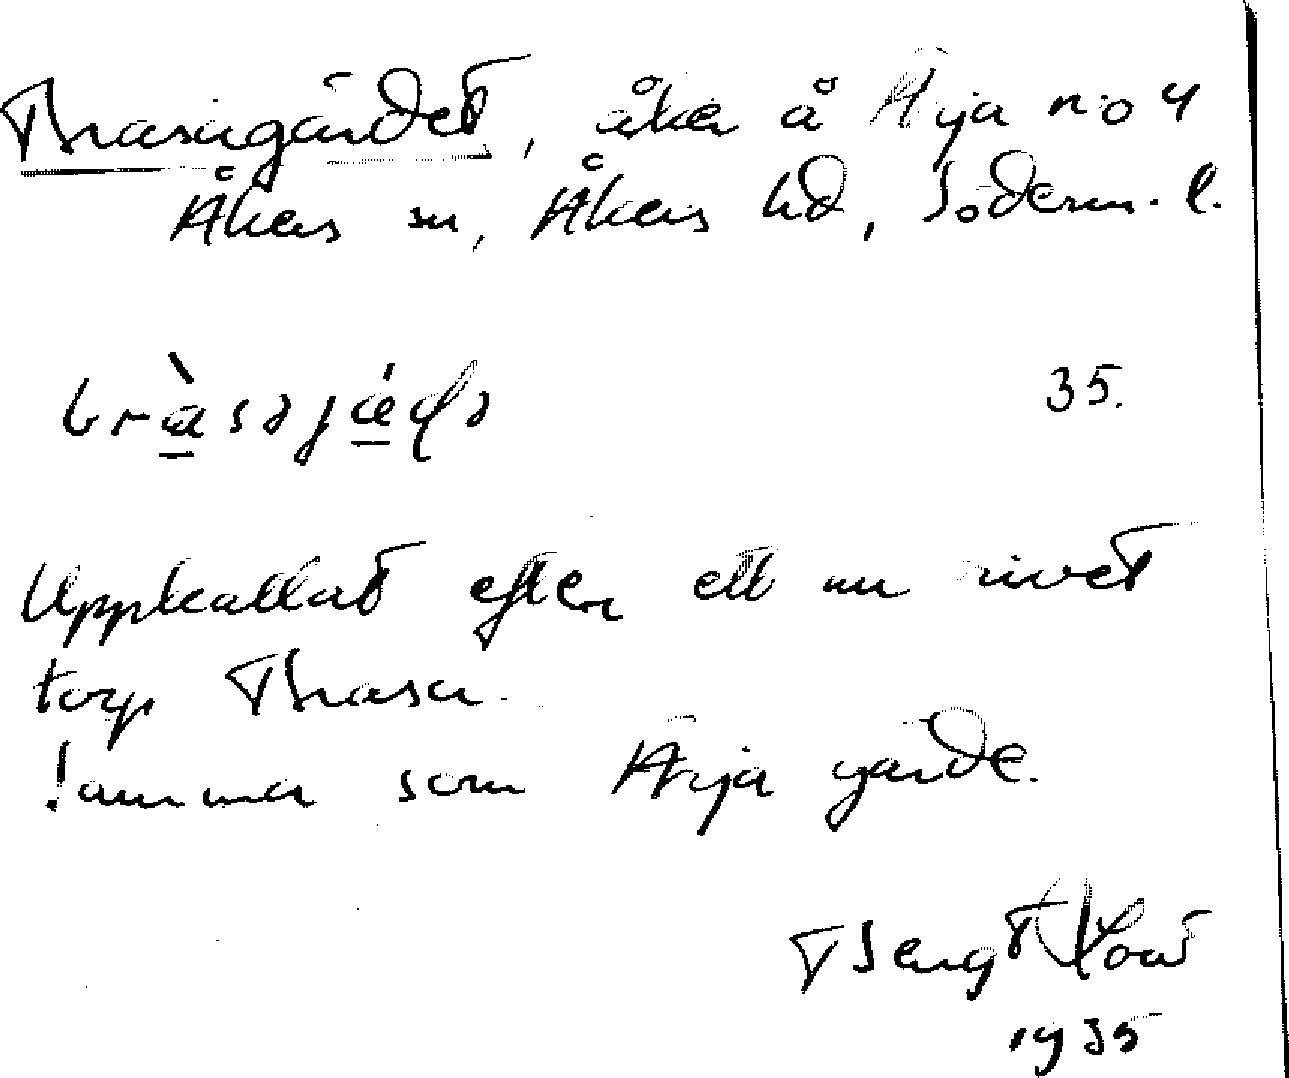 Brasagärdet, åker å Ärja no 4
Åkers sn, Åkers hd, Söderm. l.
35.
Uppkallat efter ett nu rivet
torp Brasa.
Samma som Ärja gärde.
Bengt
1935